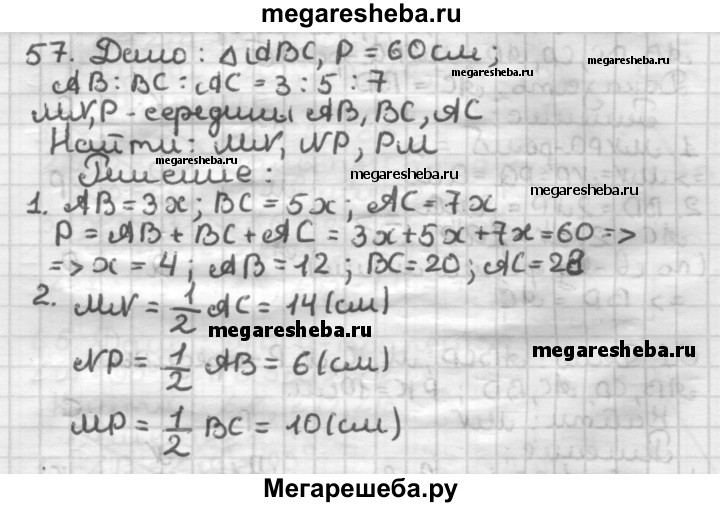 megaresheba.ru
57. Дано: △ABC, P = 60 см;
megaresheba.ru
AB : BC : AC = 3 : 5 : 7
M,N,P - середины AB, BC, AC
Найти: MN, NP, PM
megaresheba.ru
Решение:
megaresheba.ru
megaresheba.ru
1. AB = 3x; BC = 5x; AC = 7x
P = AB + BC + AC = 3x+5x+7x=60 =>
=> x = 4; AB = 12; BC = 20; AC = 28
2. MN = 1/2 AC = 14 (см)
megaresheba.ru
megaresheba.ru
NP = 1/2 AB = 6 (см)
MP = 1/2 BC = 10 (см)
Мегарешеба.ру